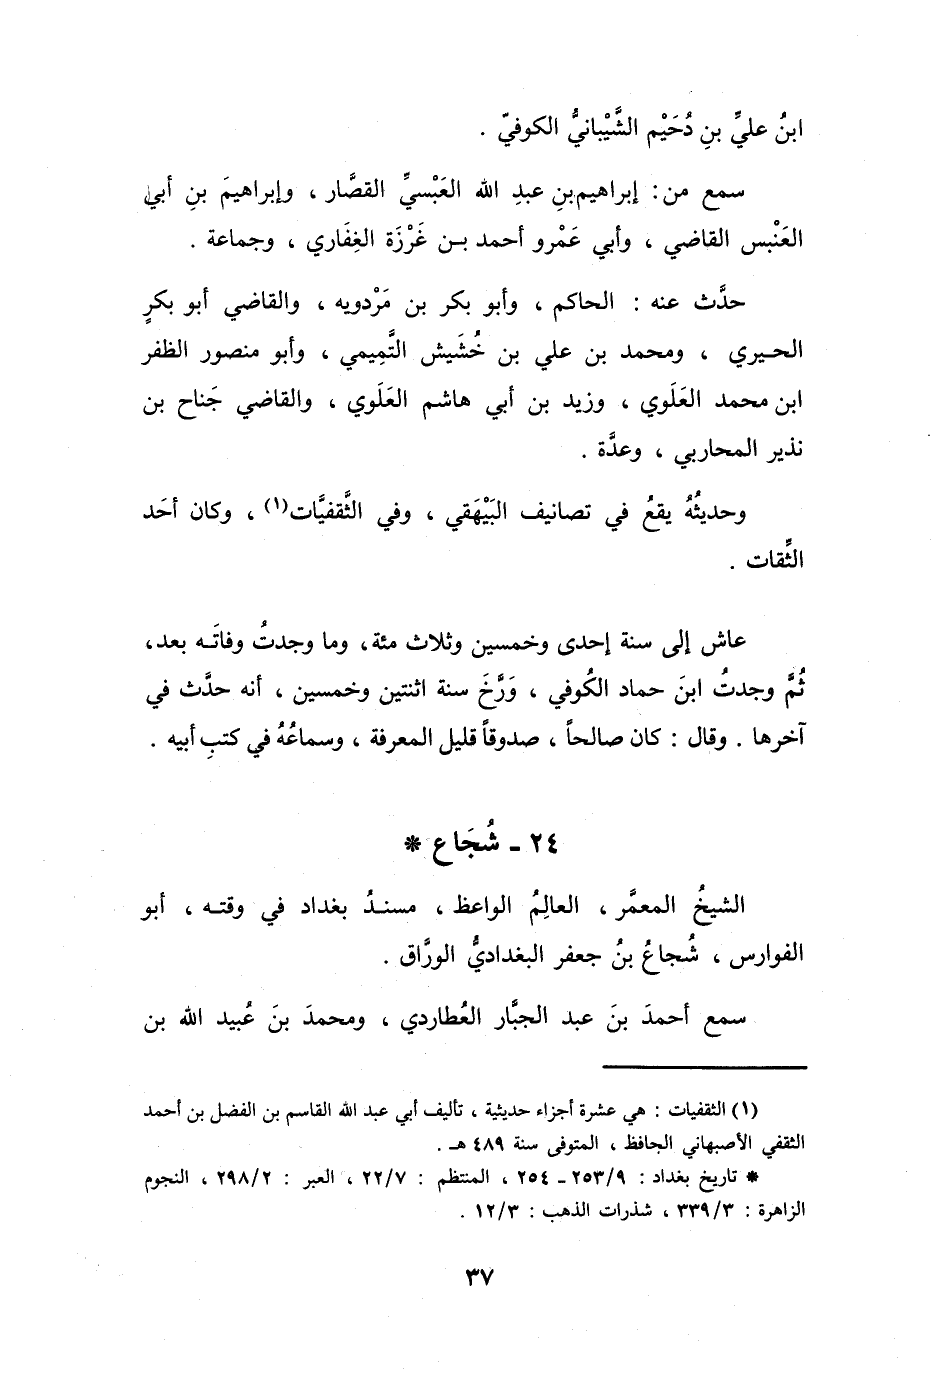 ابنُ عليِّ بنِ دُحَيْم الشَّيْبانيُّ الكوفيّ .
سمع من : إبراهيم بنِ عبدِ الله العَبْسيِّ القصَّار ، وإبراهيمَ بنِ أبي
العَنْبس القاضي ، وأبي عَمْرو أحمد بـن غَرْزَة الغِفَاري ، وجماعة .
حدَّث عنه : الحاكم ، وأبو بكر بن مَرْدويه ، والقاضي أبو بكرٍ
الحيري ، ومحمد بن علي بن خُشَيش التَّمِيمي ، وأبو منصور الظفر
ابن محمد العَلَوي ، وزيد بن أبي هاشم العَلَوي ، والقاضي جَناح بن
نذير المحاربي ، وعدَّة .
وحديثُهُ يقعُ في تصانيف البَيْهَقي ، وفي الثَّقفيَّات(١) ، وكان أحَد
الثِّقات .
عاش إلى سنة إحدى وخمسين وثلاث مئة، وما وجدتُ وفاتَـه بعد،
ثُمَّ وجدتُ ابنَ حماد الكُوفي ، وَرَّخَ سنة اثنتين وخمسين ، أنه حدَّث في
آخرها . وقال : كان صالحاً ، صدوقاً قليل المعرفة ، وسماعُهُ في كتبِ أبيه .
٢٤ - شُجَاع *
الشيخُ المعمَّر ، العالِمُ الواعظ ، مسنـدُ بغداد في وقتـه ، أبو
الفوارس ، شُجاعُ بنُ جعفر البغداديُّ الورَّاق .
سمع أحمدَ بنَ عبد الجبَّار العُطاردي ، ومحمدَ بنَ عُبيد الله بن
(١) الثقفيات : هي عشرة أجزاء حديثية ، تأليف أبي عبد الله القاسم بن الفضل بن أحمد
الثقفي الأصبهاني الحافظ ، المتوفى سنة ٤٨٩ هـ .
* تاريخ بغداد : ٢٥٣/٩ - ٢٥٤ ، المنتظم : ٢٢/٧ ، العبر : ٢٩٨/٢ ، النجوم
الزاهرة : ٣٣٩/٣ ، شذرات الذهب : ١٢/٣ .
٣٧